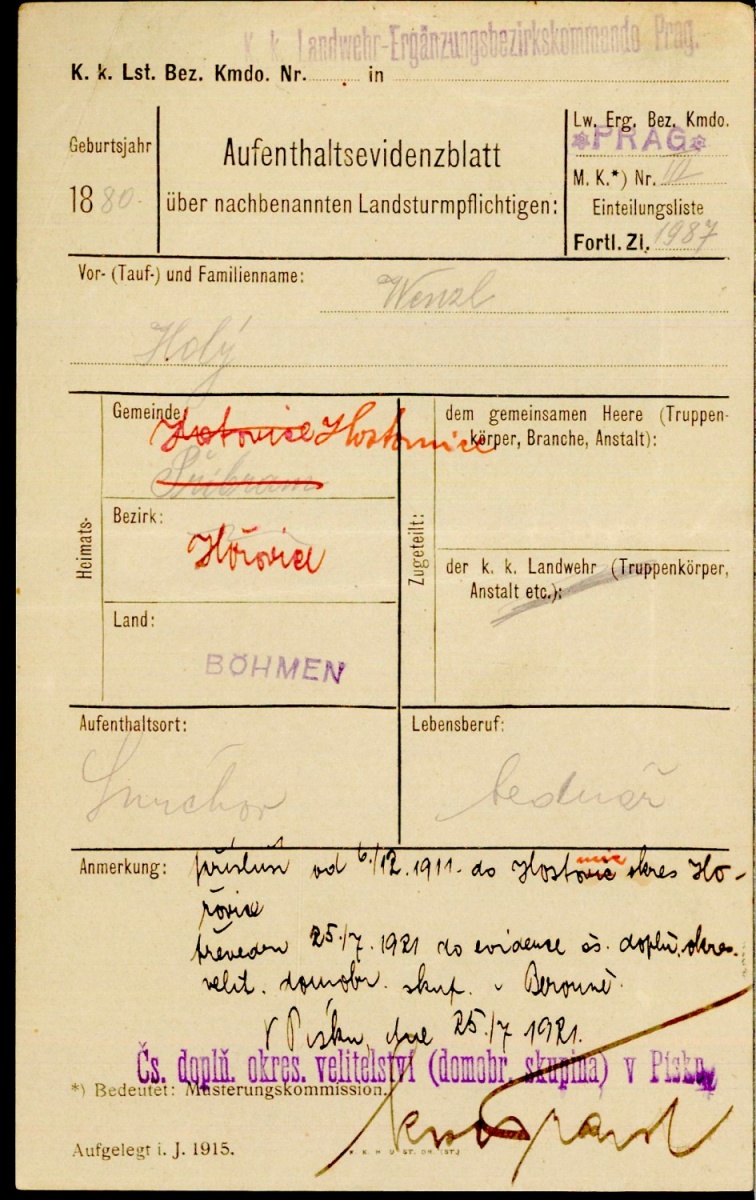 K. k. Landwehr-Ergänzungsbezirkskommando Prag.
K. k. Lst. Bez. Kmdo. Nr. in
Geburtsjahr
1880
Aufenthaltsevidenzblatt
über nachbenannten Landsturmpflichtigen:
Lw. Erg. Bez. Kmdo.
*PRAG*
M. K.*) Nr. III
Einteilungsliste
Fortl. Zl. 1987
Vor- (Tauf-) und Familienname: Wenzl
Holý
Heimats-
Gemeinde
Hostomice
Příbram
Bezirk:
Hořovice
Land:
BÖHMEN
Zugeteilt:
dem gemeinsamen Heere (Truppen-
körper, Branche, Anstalt):
der k. k. Landwehr (Truppenkörper,
Anstalt etc.):
Aufenthaltsort:
Smíchov
Lebensberuf:
bednář
Anmerkung: přísluší od 6./12. 1911. do Hostomic okres Ho-
řovice
převeden 25./7. 1921 do evidence čs. doplň. okres.
velit. domobr. skup. v Berouně.
V Písku, dne 25./7 1921.
Čs. doplň. okres. velitelství (domobr. skupina) v Písku
*) Bedeutet: Musterungskommission.
Aufgelegt i. J. 1915.